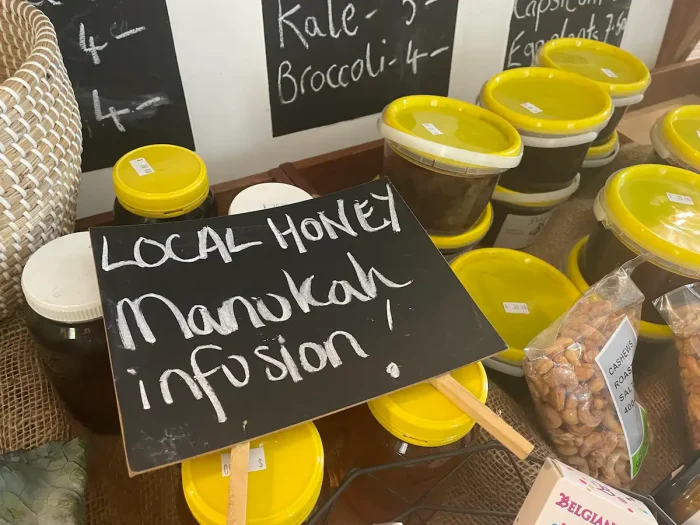 4 -
4 -
Kale - 3 -
Broccoli - 4 -
Capsicum
Eggplants 7.50
LOCAL HONEY
Manukah
infusion!
CASHEWS
ROAS
SALT
400
BELGIAN